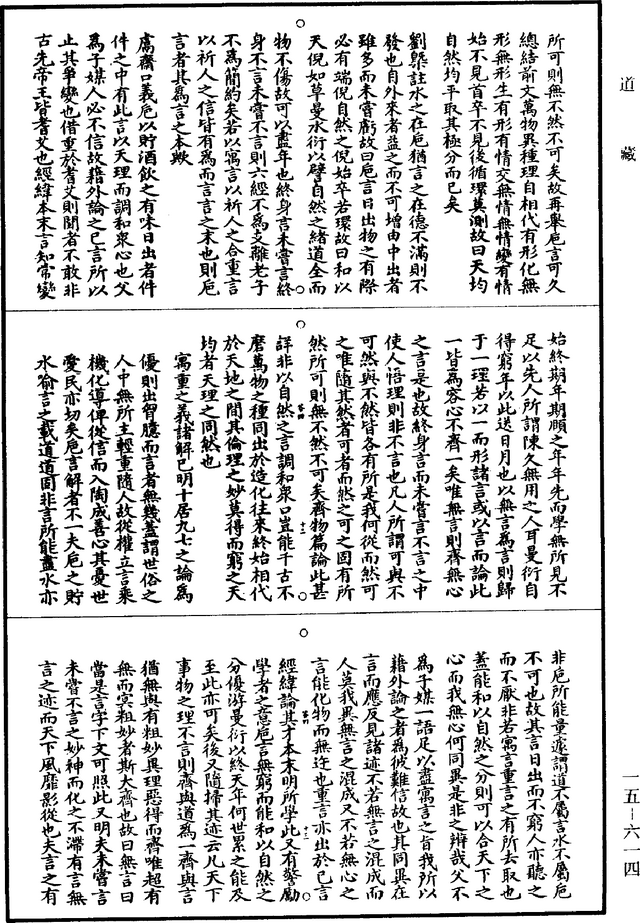 道藏
所可則無不然不可矣故再舉巵言可久
總結前文萬物異種理自相代有形化無
形無形生有形有情交無情無情變有情
始不見首卒不見後循環莫測故曰天均
自然均平取其極分而已矣
劉槩註水之在巵猶言之在德不滿則不
發也自外來者益之而不可增由中出者
雖多而未嘗虧故曰巵言日出物之有際
必有端倪自然之倪始卒若環故曰和以
天倪如草曼水衍以譬自然之緒道全而
物不傷故可以盡年也終身言未嘗言終
身不言未嘗不言則六經不為支離老子
不為簡約矣若以寓言以祈人之合重言
以祈人之信皆有為而言言之末也則巵
言者其為言之本歟
鬳齋口義巵以貯酒飲之有味日出者件
件之中有此言以天理而調和衆心也父
為子媒人必不信故藉外論之已言所以
止其爭變也借重於耆艾則聞者不敢非
古先帝王皆耆艾也經緯本末言知常變
始終期年期頤之年年先而學無所見不
足以先人所謂陳久無用之人耳曼衍自
得窮年以此送日月也以無言為言則歸
于一理若以一而形諸言或以言而論此
一皆為容心不齊一矣唯無言則齊無心
之言是也故終身言而未嘗言不言之中
使人悟理則非不言也凡人所謂可與不
可然與不然皆各有所是我何從而然可
之唯隨其然者可者而然之可之固有所
然所可則無不然不可矣齊物篇論此甚
詳非以自然之言調和衆口豈能千古不
磨萬物之種同出於造化往來終始相代
於天地之間其倫理之妙莫得而窮之天
均者天理之同然也
寓重之義諸解已明十居九七之論為
優則出智臆而言者無幾蓋謂世俗之
人中無所主輕重隨人故從權立言乘
機化導俾從信而入陶成善心其憂世
愛民亦切矣巵言解者不一夫巵之貯
水喻言之載道道固非言所能盡水亦
非巵所能量遽謂道不屬言水不屬巵
不可也故其言日出而不窮人亦聽之
而不厭非若寓言重言之有所去取也
蓋能和以自然之分則可以合天下之
心而我無心何同異是非之辨哉父不
為子媒一語足以盡寓言之旨我所以
藉外論之者為彼難信故也其同異在
言而應反見諸迹不若無言之混成而
人莫我異無言之混成又不若無心之
言能化物而無迕也重言亦出於已言
經緯論其才本末明所學此又有警勵
學者之意巵言無窮而能和以自然之
分優游曼衍以終天年何世累之能及
至此亦可矣後又隨掃其迹云凡天下
事物之理不言則齊與道為一齊與言
猶無與有粗妙異理惡得而齊唯超有
無而㝠粗妙者斯大齊也故曰無言曰
當是言字下文可照此又明夫未嘗言
未嘗不言之妙神而化之不滯有言無
言之迹而天下風靡影從也夫言之有
一五-六一四